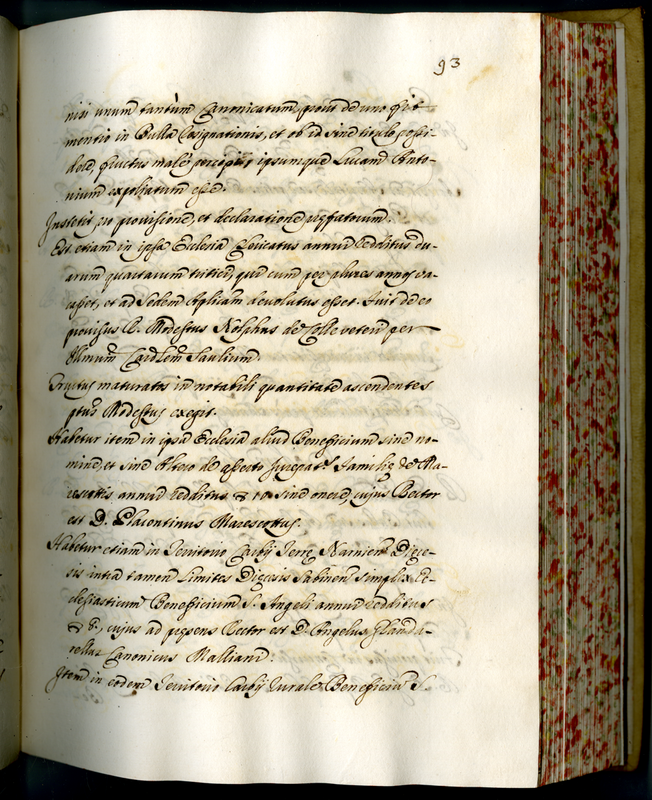 93
nisi unum tantùm Canonicatum, prout de uno fit
mentio in Bulla Assignationis, et ob id sine titulo possi-
dere, fructus malè percepisse ipsumque Lucam Anto-
nium expoliatum esse.
Institit pro provisione, et declaratione
Est etiam in ipsa Ecclesia Clericatus annui redditus du-
arum quartarum tritici, qui cum per plures annos va-
casset, et ad Sedem Apliam devolutus esset. Fuit de eo
provisus D. Modestus Nosalus de Colle veteri per
Illimum Cardlem Saulium.
Fructus maturatos in notabili quantitate ascendentes
ptus Modestus exegit.
Habetur item in ipsa Ecclesia aliud Beneficium sine no-
mine, et sine Altare de Familiæ de Ma-
rescottis annui redditus 10 sine onere, cujus Rector
est D. Placentinus Marescottus.
Habetur etiam in Territorio Carbij Terræ Narnien Diœce-
sis intra tamen Limites Diœcesis Sabinen simplex Ec-
clesiasticum Beneficium S. Angeli annui redditus
8, cujus ad præsens Rector est D. Angelus Glanda-
rellus Canonicus Mallianen.
Item in eodem Territorio Carbij Rurale Beneficiu S.